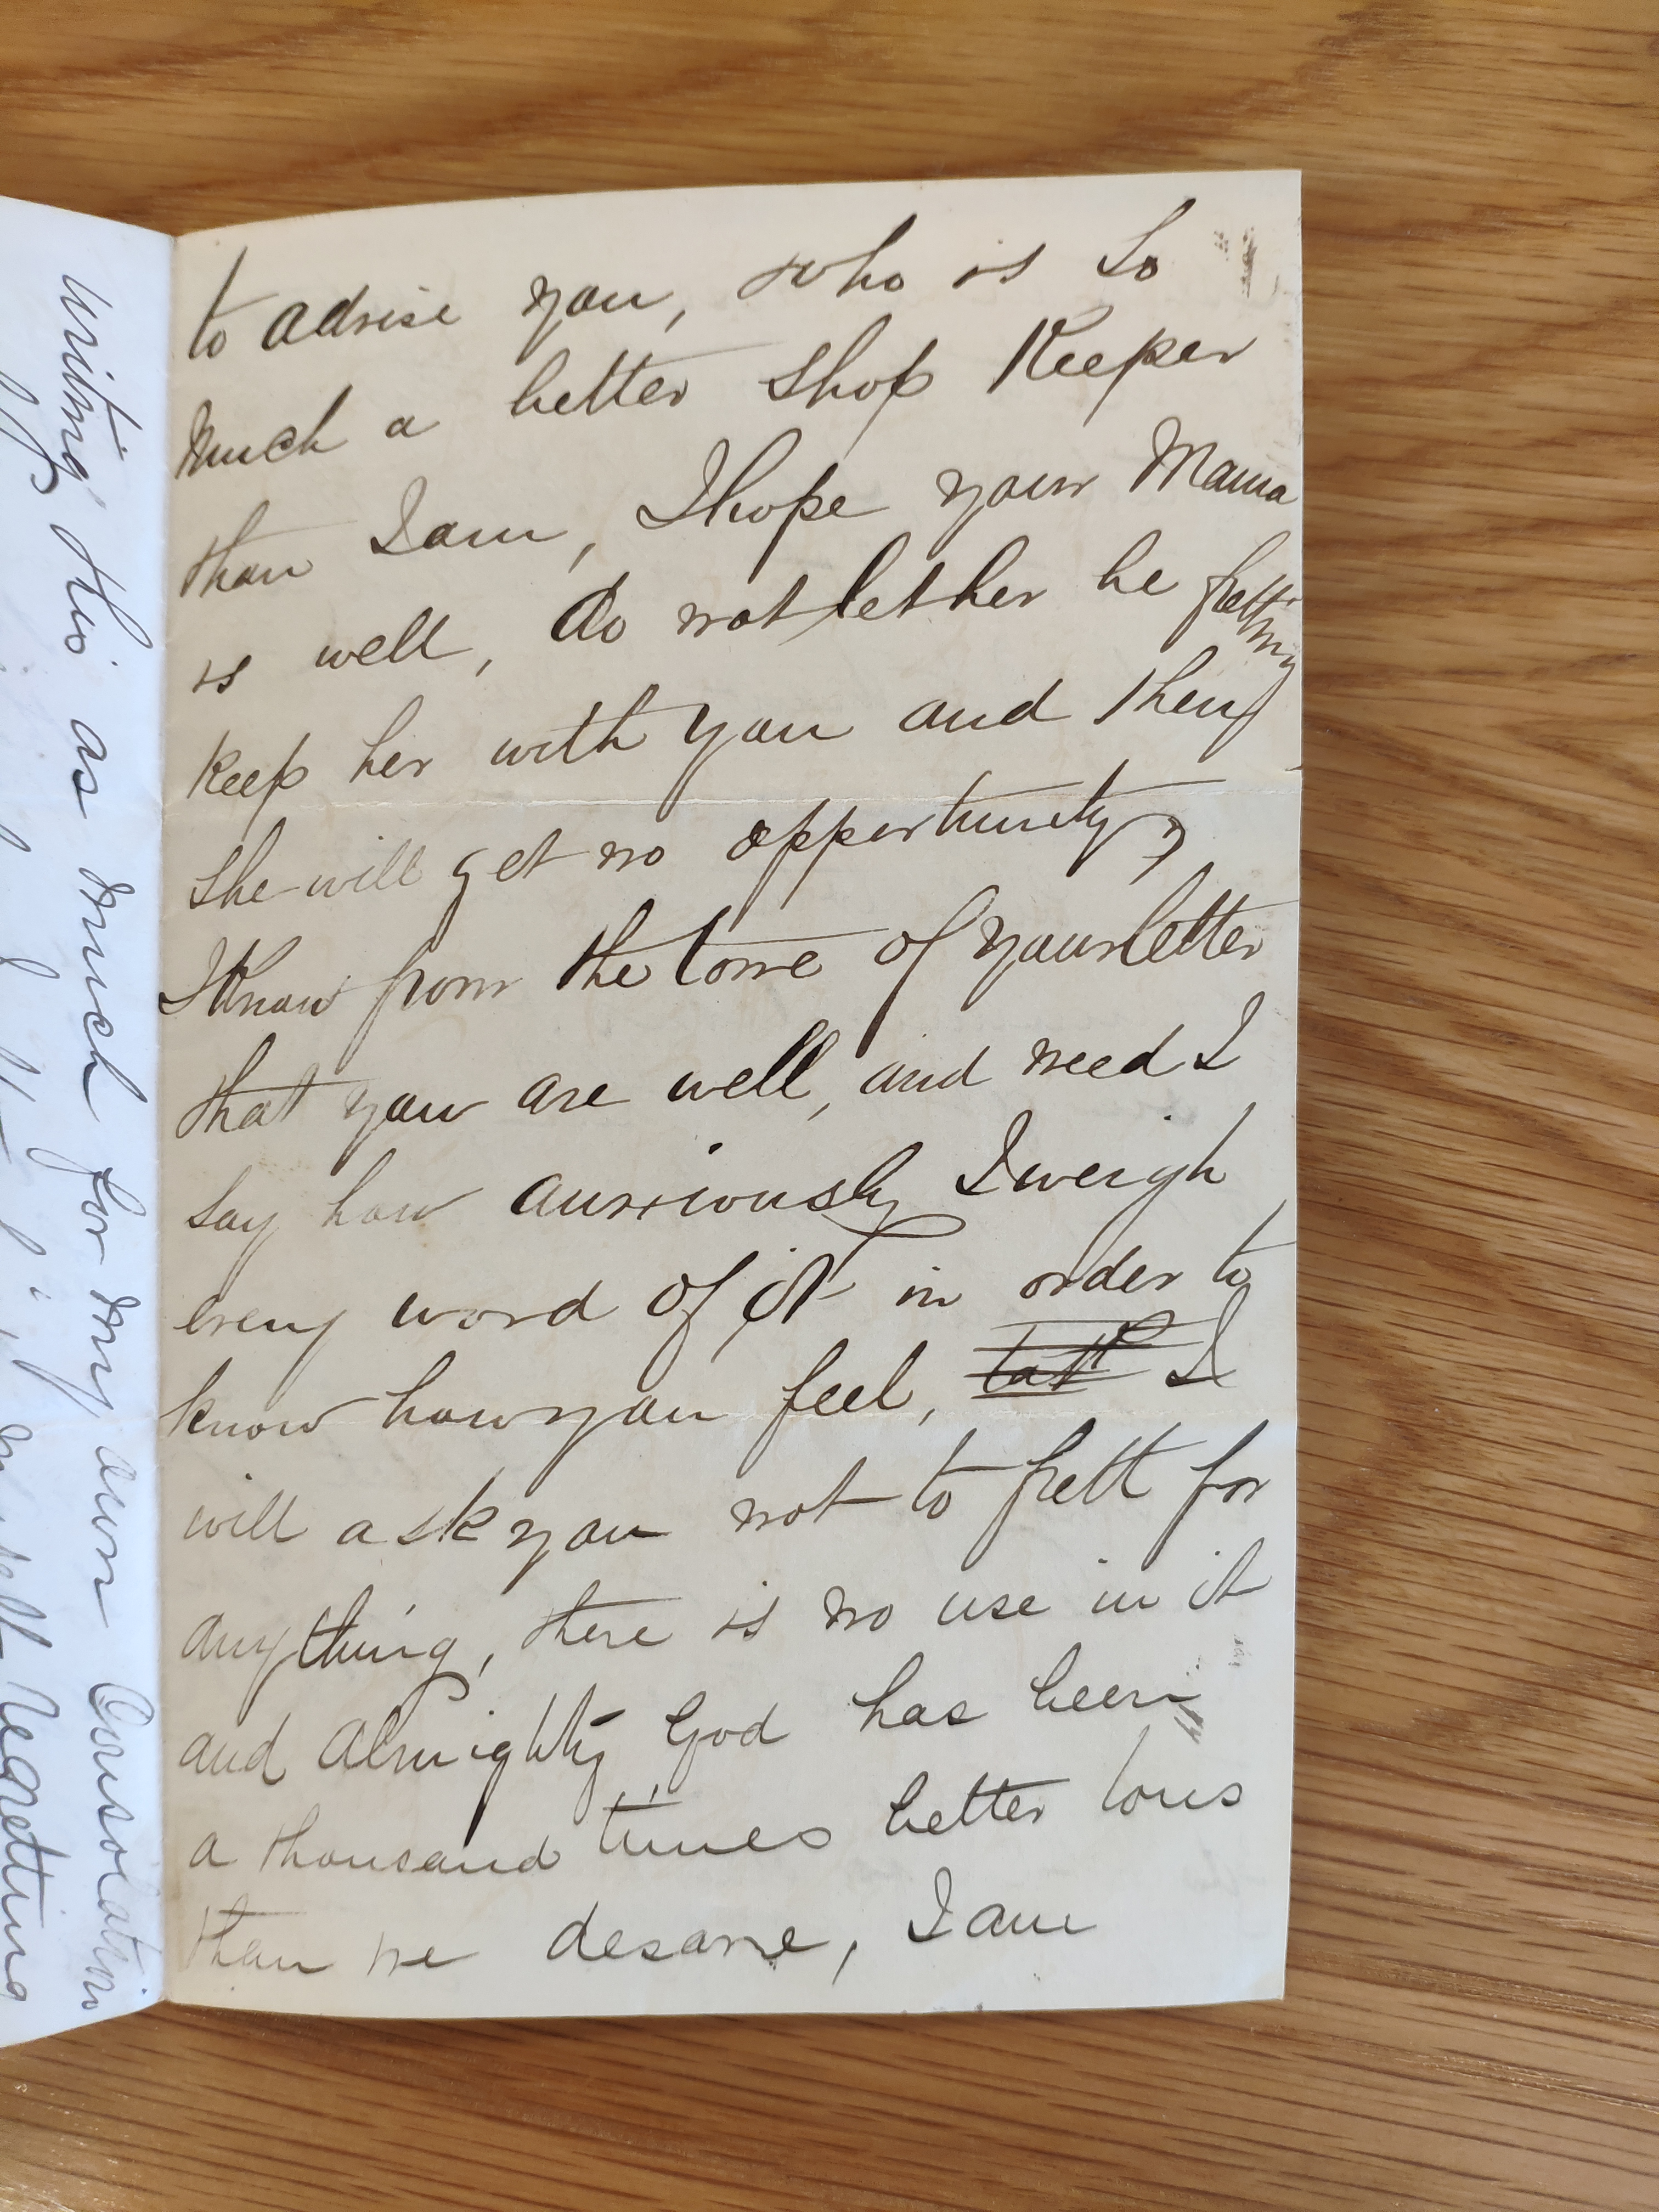 to advise you, who is so
much a better shop Keeper
than I am, I hope your Mama
is well, do not let her be fretting
keep her with you and then
she will get no opportunity,
I know from the tone of your letter
that you are well, and need I
say how anxiously I weigh
every word of it in order to
know how you feel, I
will ask you not to frett for
anything, there is no use in it
and Almighty God has been
a thousand times better to us
than we desarve, I am
writing this as much for my own Consolation
regretting